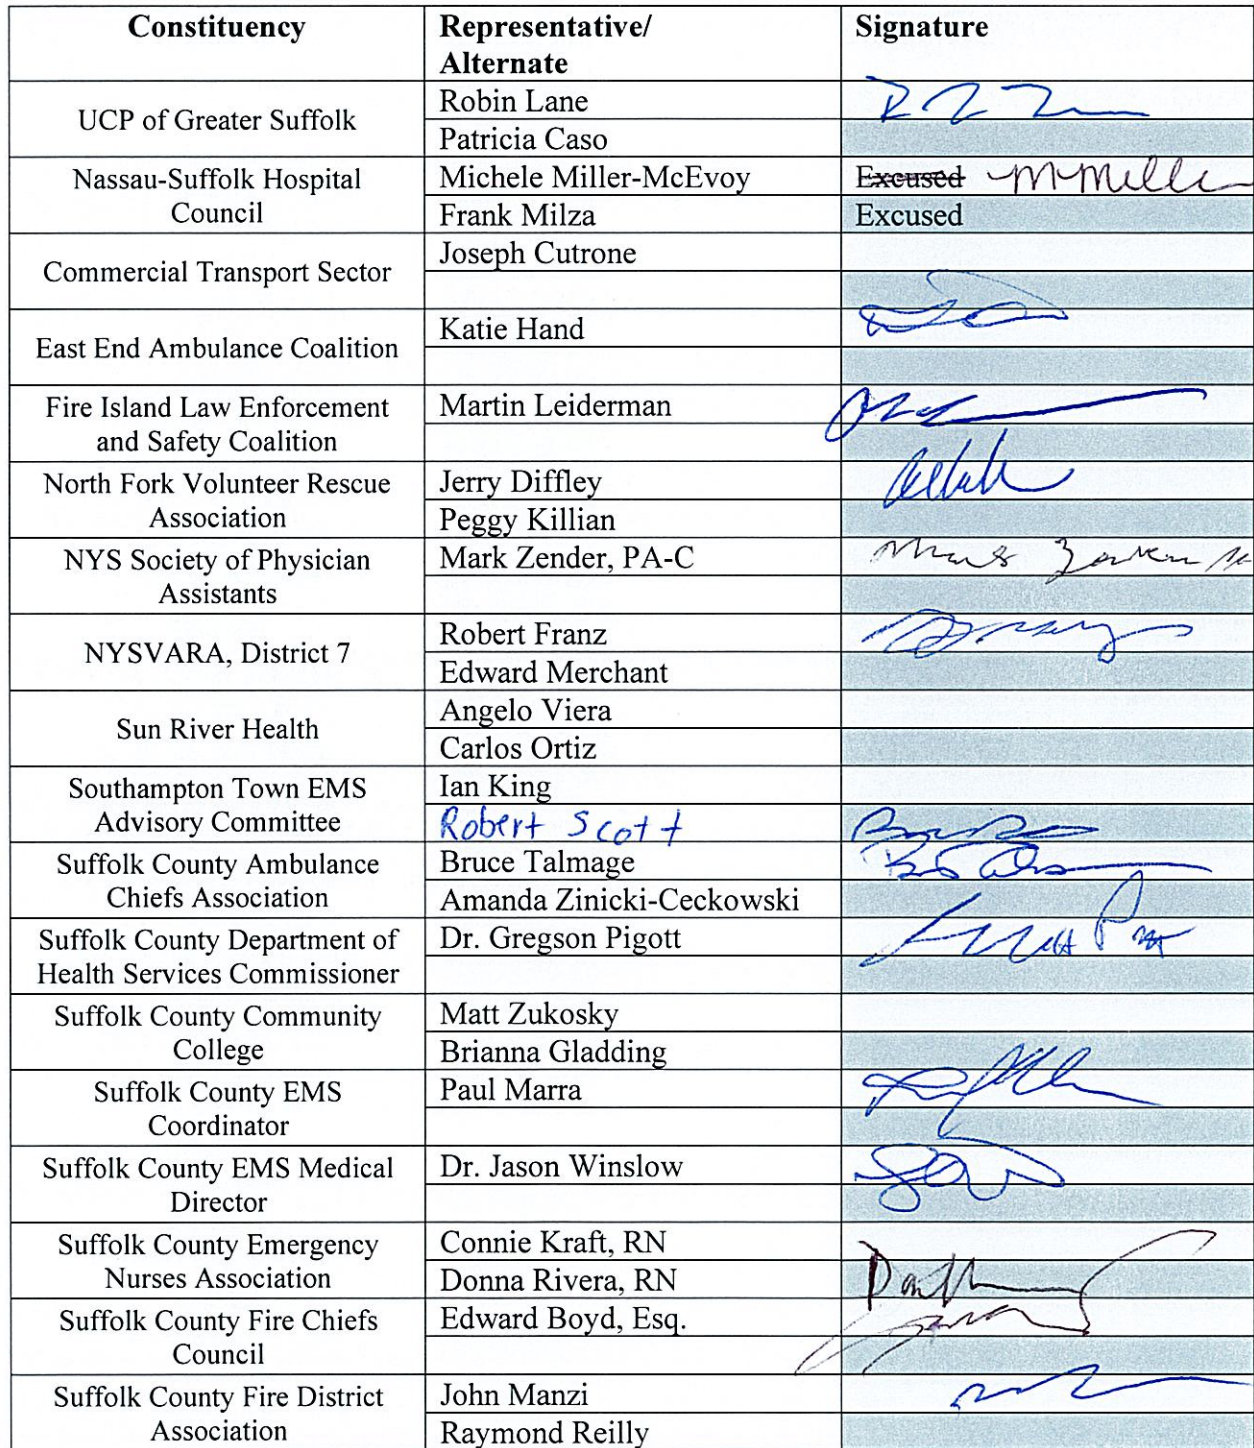 Constituency Representative/ Signature
Alternate
UCP of Greater Suffolk
Robin Lane
Patricia Caso
Nassau-Suffolk Hospital
Council
Michele Miller-McEvoy Excused
Frank Milza Excused
Commercial Transport Sector
Joseph Cutrone
East End Ambulance Coalition
Katie Hand
Fire Island Law Enforcement
and Safety Coalition
Martin Leiderman
North Fork Volunteer Rescue
Association
Jerry Diffley
Peggy Killian
NYS Society of Physician
Assistants
Mark Zender, PA-C
NYSVARA, District 7
Robert Franz
Edward Merchant
Sun River Health
Angelo Viera
Carlos Ortiz
Southampton Town EMS
Advisory Committee
Ian King
Robert Scott
Suffolk County Ambulance
Chiefs Association
Bruce Talmage
Amanda Zinicki-Ceckowski
Suffolk County Department of
Health Services Commissioner
Dr. Gregson Pigott
Suffolk County Community
College
Matt Zukosky
Brianna Gladding
Suffolk County EMS
Coordinator
Paul Marra
Suffolk County EMS Medical
Director
Dr. Jason Winslow
Suffolk County Emergency
Nurses Association
Connie Kraft, RN
Donna Rivera, RN
Suffolk County Fire Chiefs
Council
Edward Boyd, Esq.
Suffolk County Fire District
Association
John Manzi
Raymond Reilly